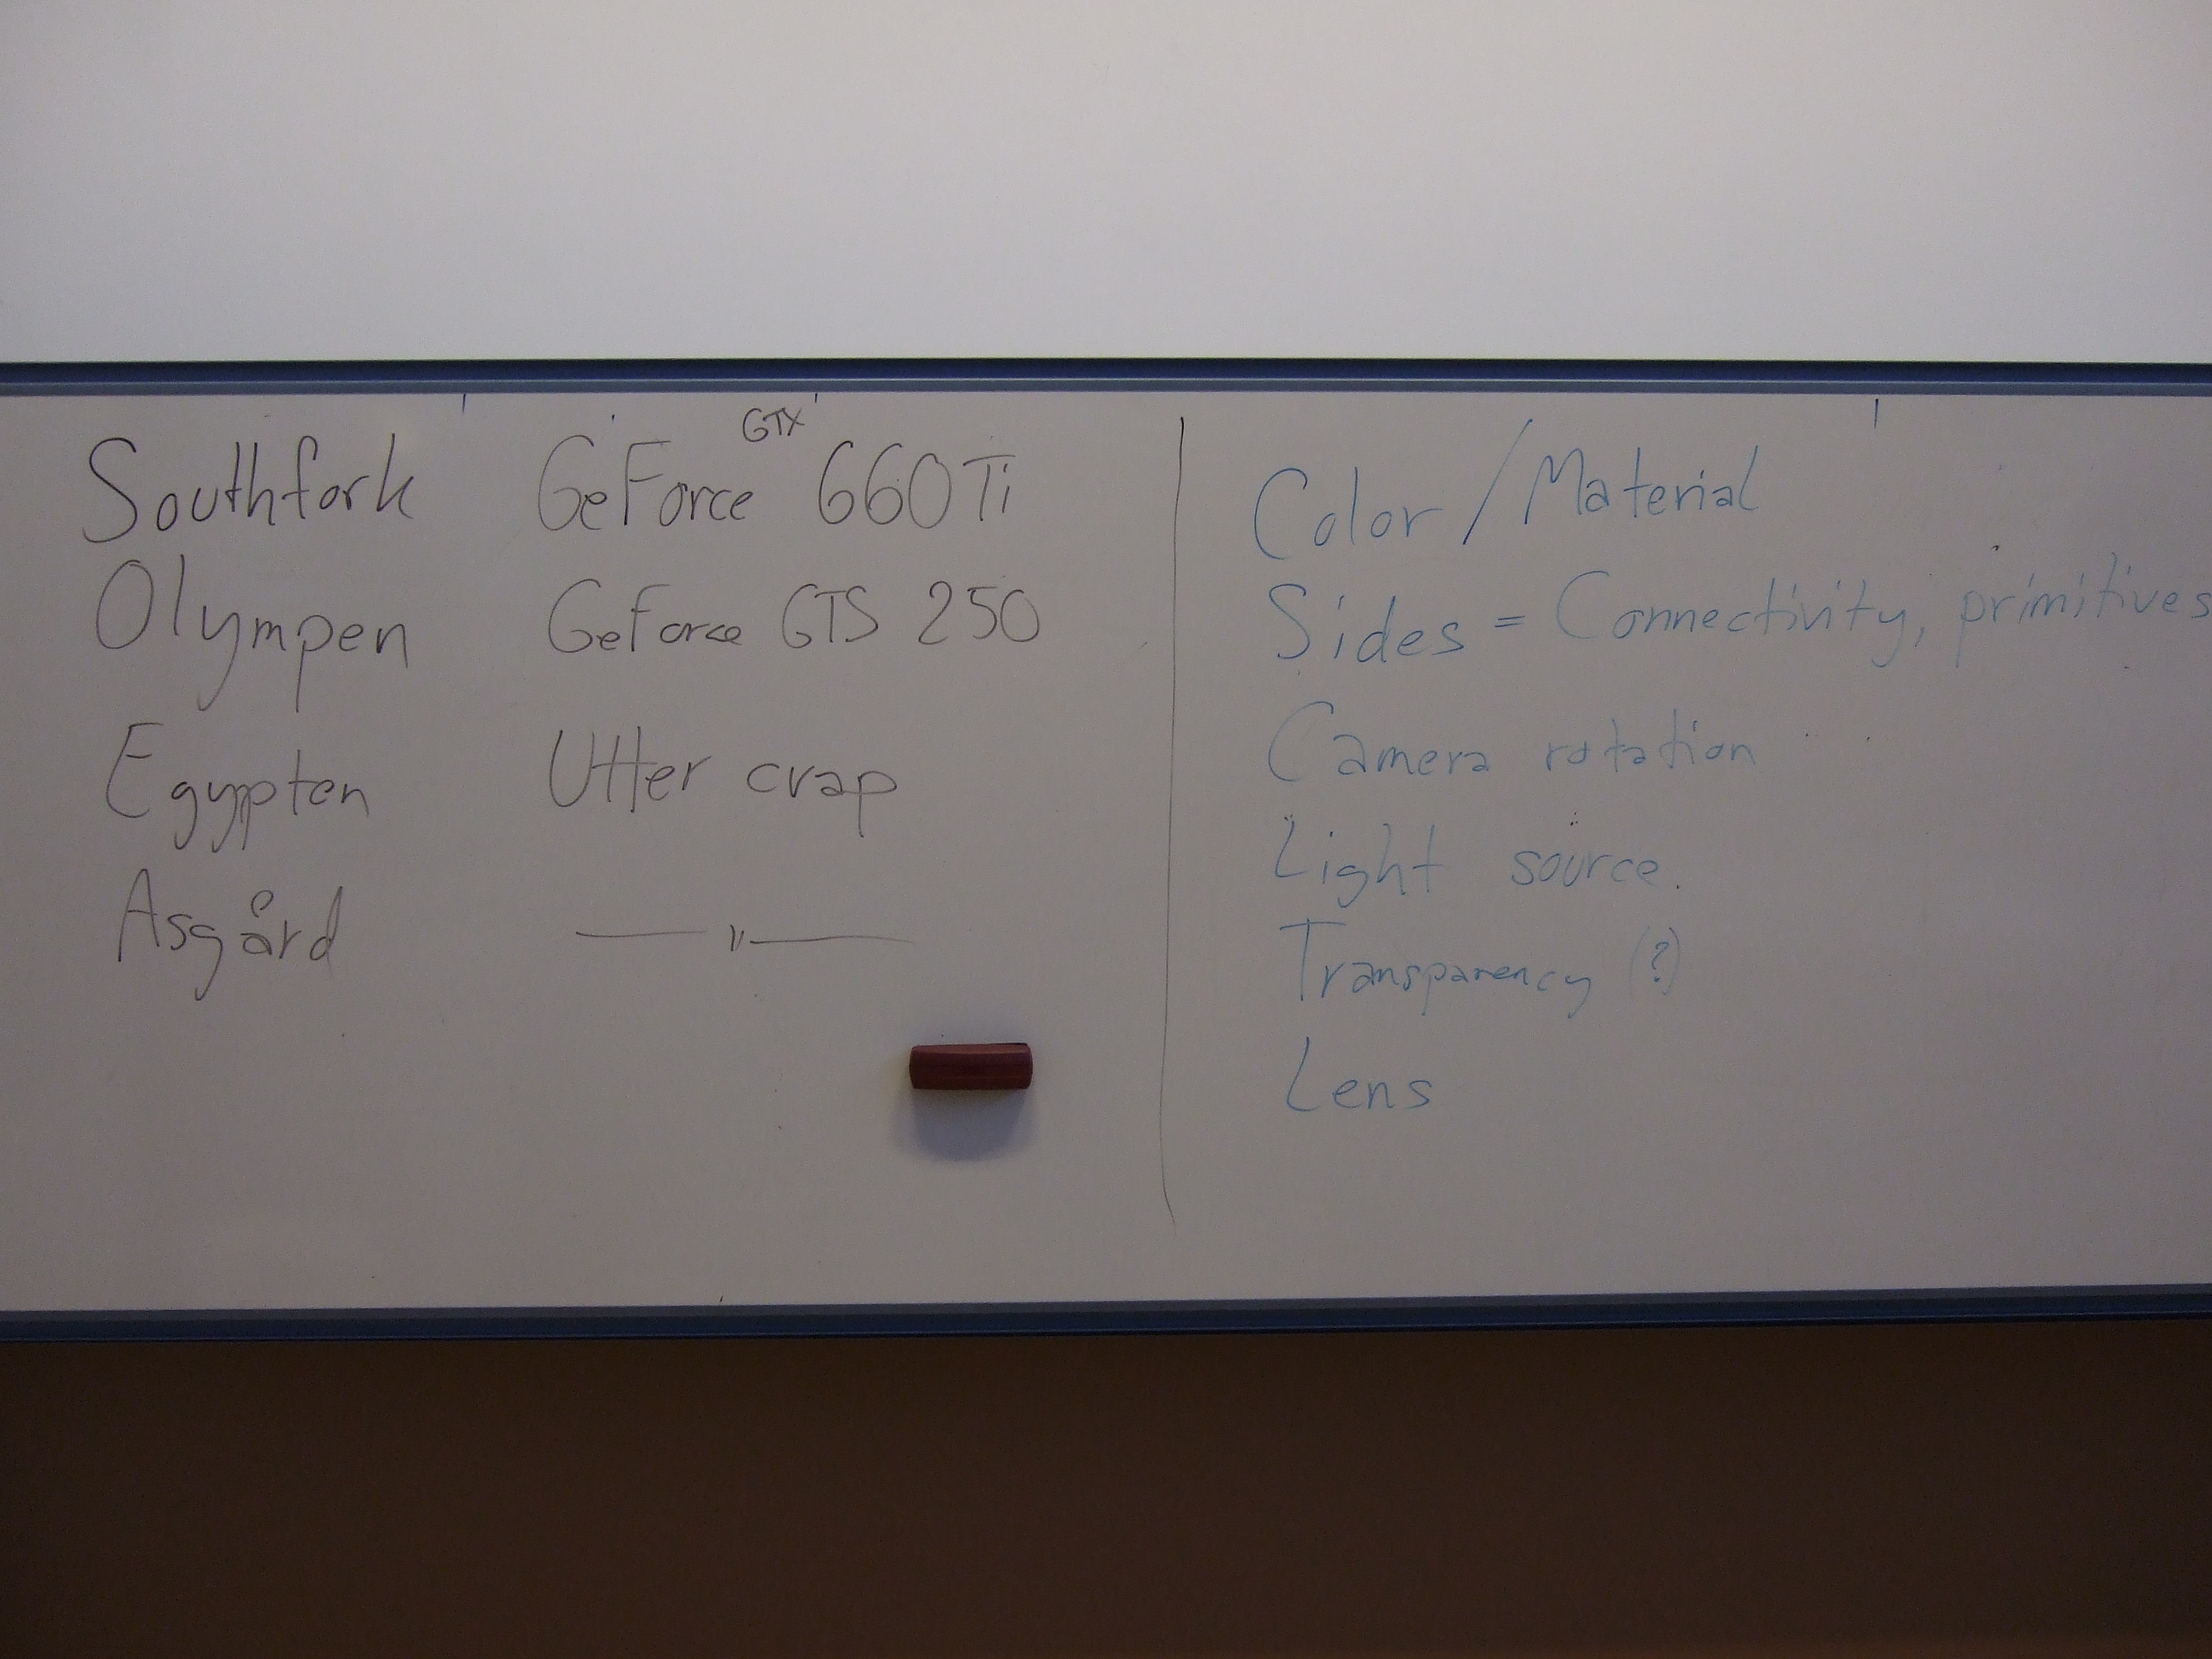 Southfork GeForce GTX 660 Ti
Olympen GeForce GTS 250
Egypten Utter crap
Asgård —— " ——
Color / Material
Sides = Connectivity, primitives
Camera rotation
Light source.
Transparency (?)
Lens